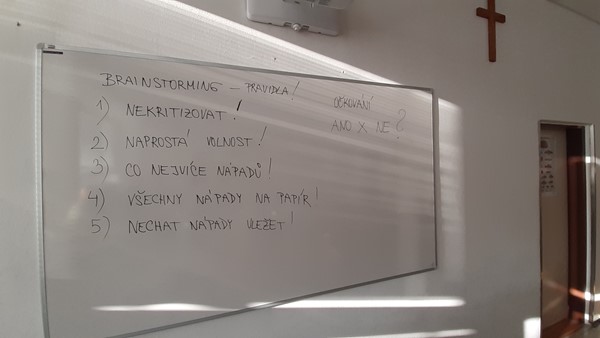 BRAINSTORMING – PRAVIDLA!
1) NEKRITIZOVAT!
2) NAPROSTÁ VOLNOST!
3) CO NEJVÍCE NÁPADŮ!
4) VŠECHNY NÁPADY NA PAPÍR!
5) NECHAT NÁPADY ULEŽET!
OČKOVÁNÍ
ANO X NE?